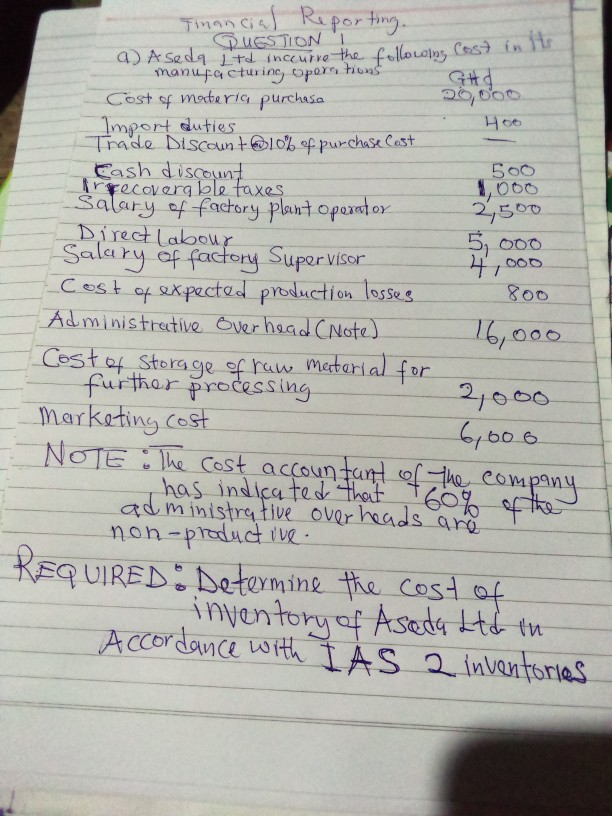 Financial Reporting.
QUESTION 1
a) Aseda Ltd incurre the following Cost in its
manufacturing operations
GH¢
Cost of materia purchase 20,000
Import duties 400
Trade Discount @10% of purchase Cost —
Cash discount 500
Irrecoverable taxes 1,000
Salary of factory plant operator 2,500
Direct Labour 5,000
Salary of factory Supervisor 4,000
Cost of expected production losses 800
Administrative Overhead (Note) 16,000
Cost of Storage of raw material for
further processing 2,000
Marketing cost 6,000
NOTE: The cost accountant of the company
has indicated that 60% of the
administrative overheads are
non-productive.
REQUIRED: Determine the cost of
inventory of Aseda Ltd in
Accordance with IAS 2 inventories